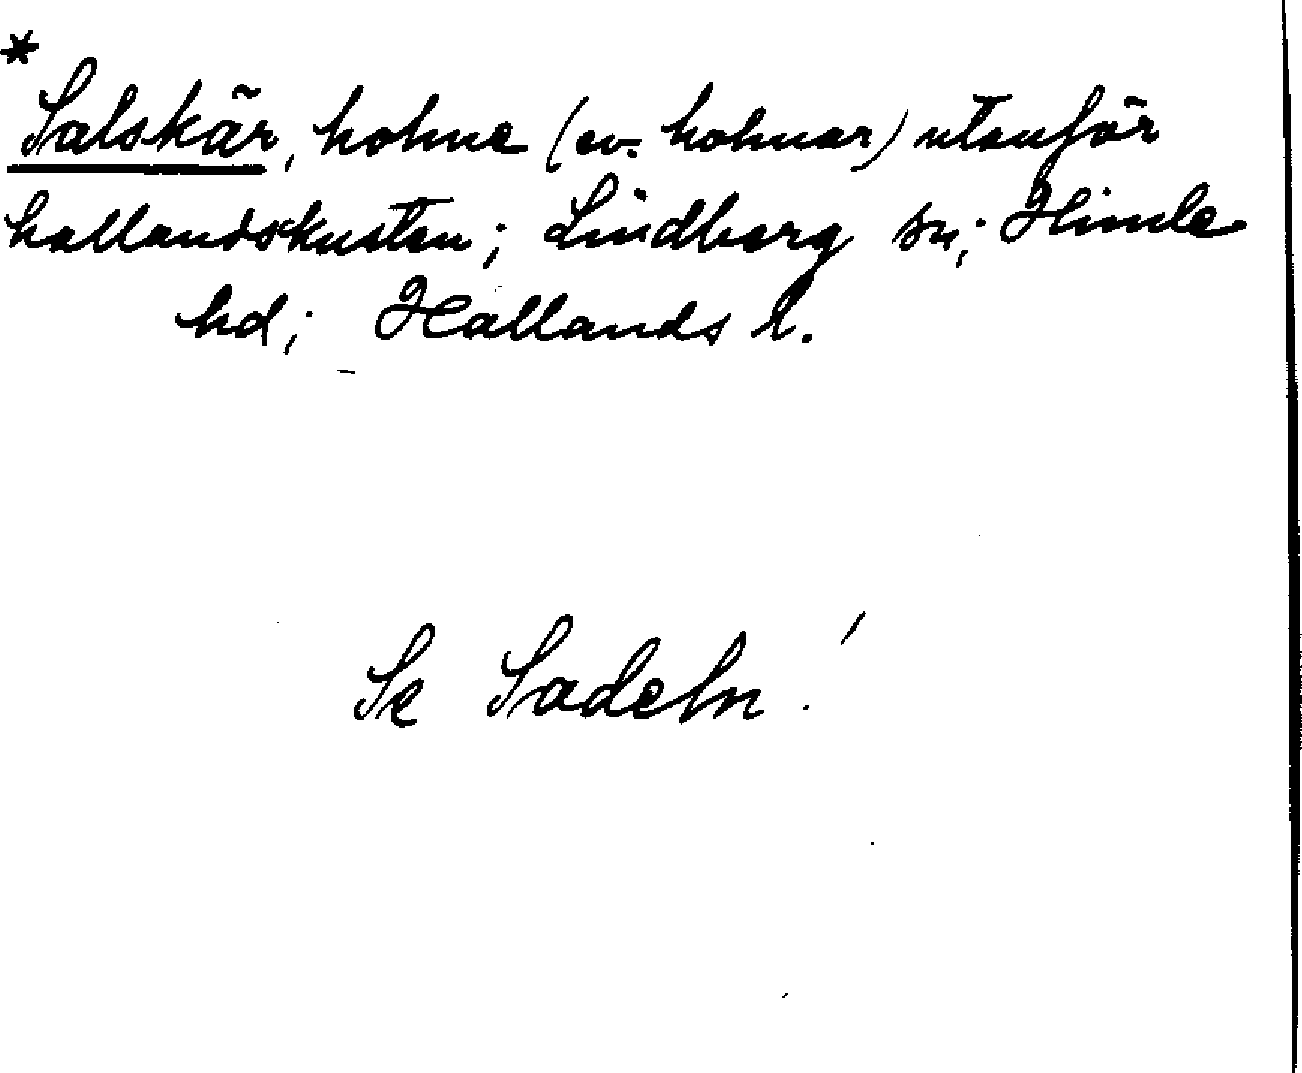 *
Salskär, holme (ev. holmar) utanför
hallandskusten; Lindberg sn; Himle
hd; Hallands l.
Se Sadeln!